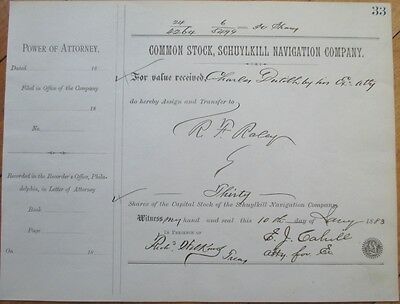 33
24 6
5264 5499 30 Shares
POWER OF ATTORNEY,
Dated 18
Filed in Office of the Company
18
No.
Recorded in the Recorder's Office, Phila-
delphia, in Letter of Attorney
Book
Page
On 18
COMMON STOCK, SCHUYLKILL NAVIGATION COMPANY.
For value received, Charles Dutilh by his Ex. atty
do hereby Assign and Transfer to
R. F. Raley
Thirty
Shares of the Capital Stock of the Schuylkill Navigation Company
Witness my hand and seal this 10th day of Jany 1883
IN PRESENCE OF
E. J. Cahill
Rich. Wilkins atty for Ex
Treas